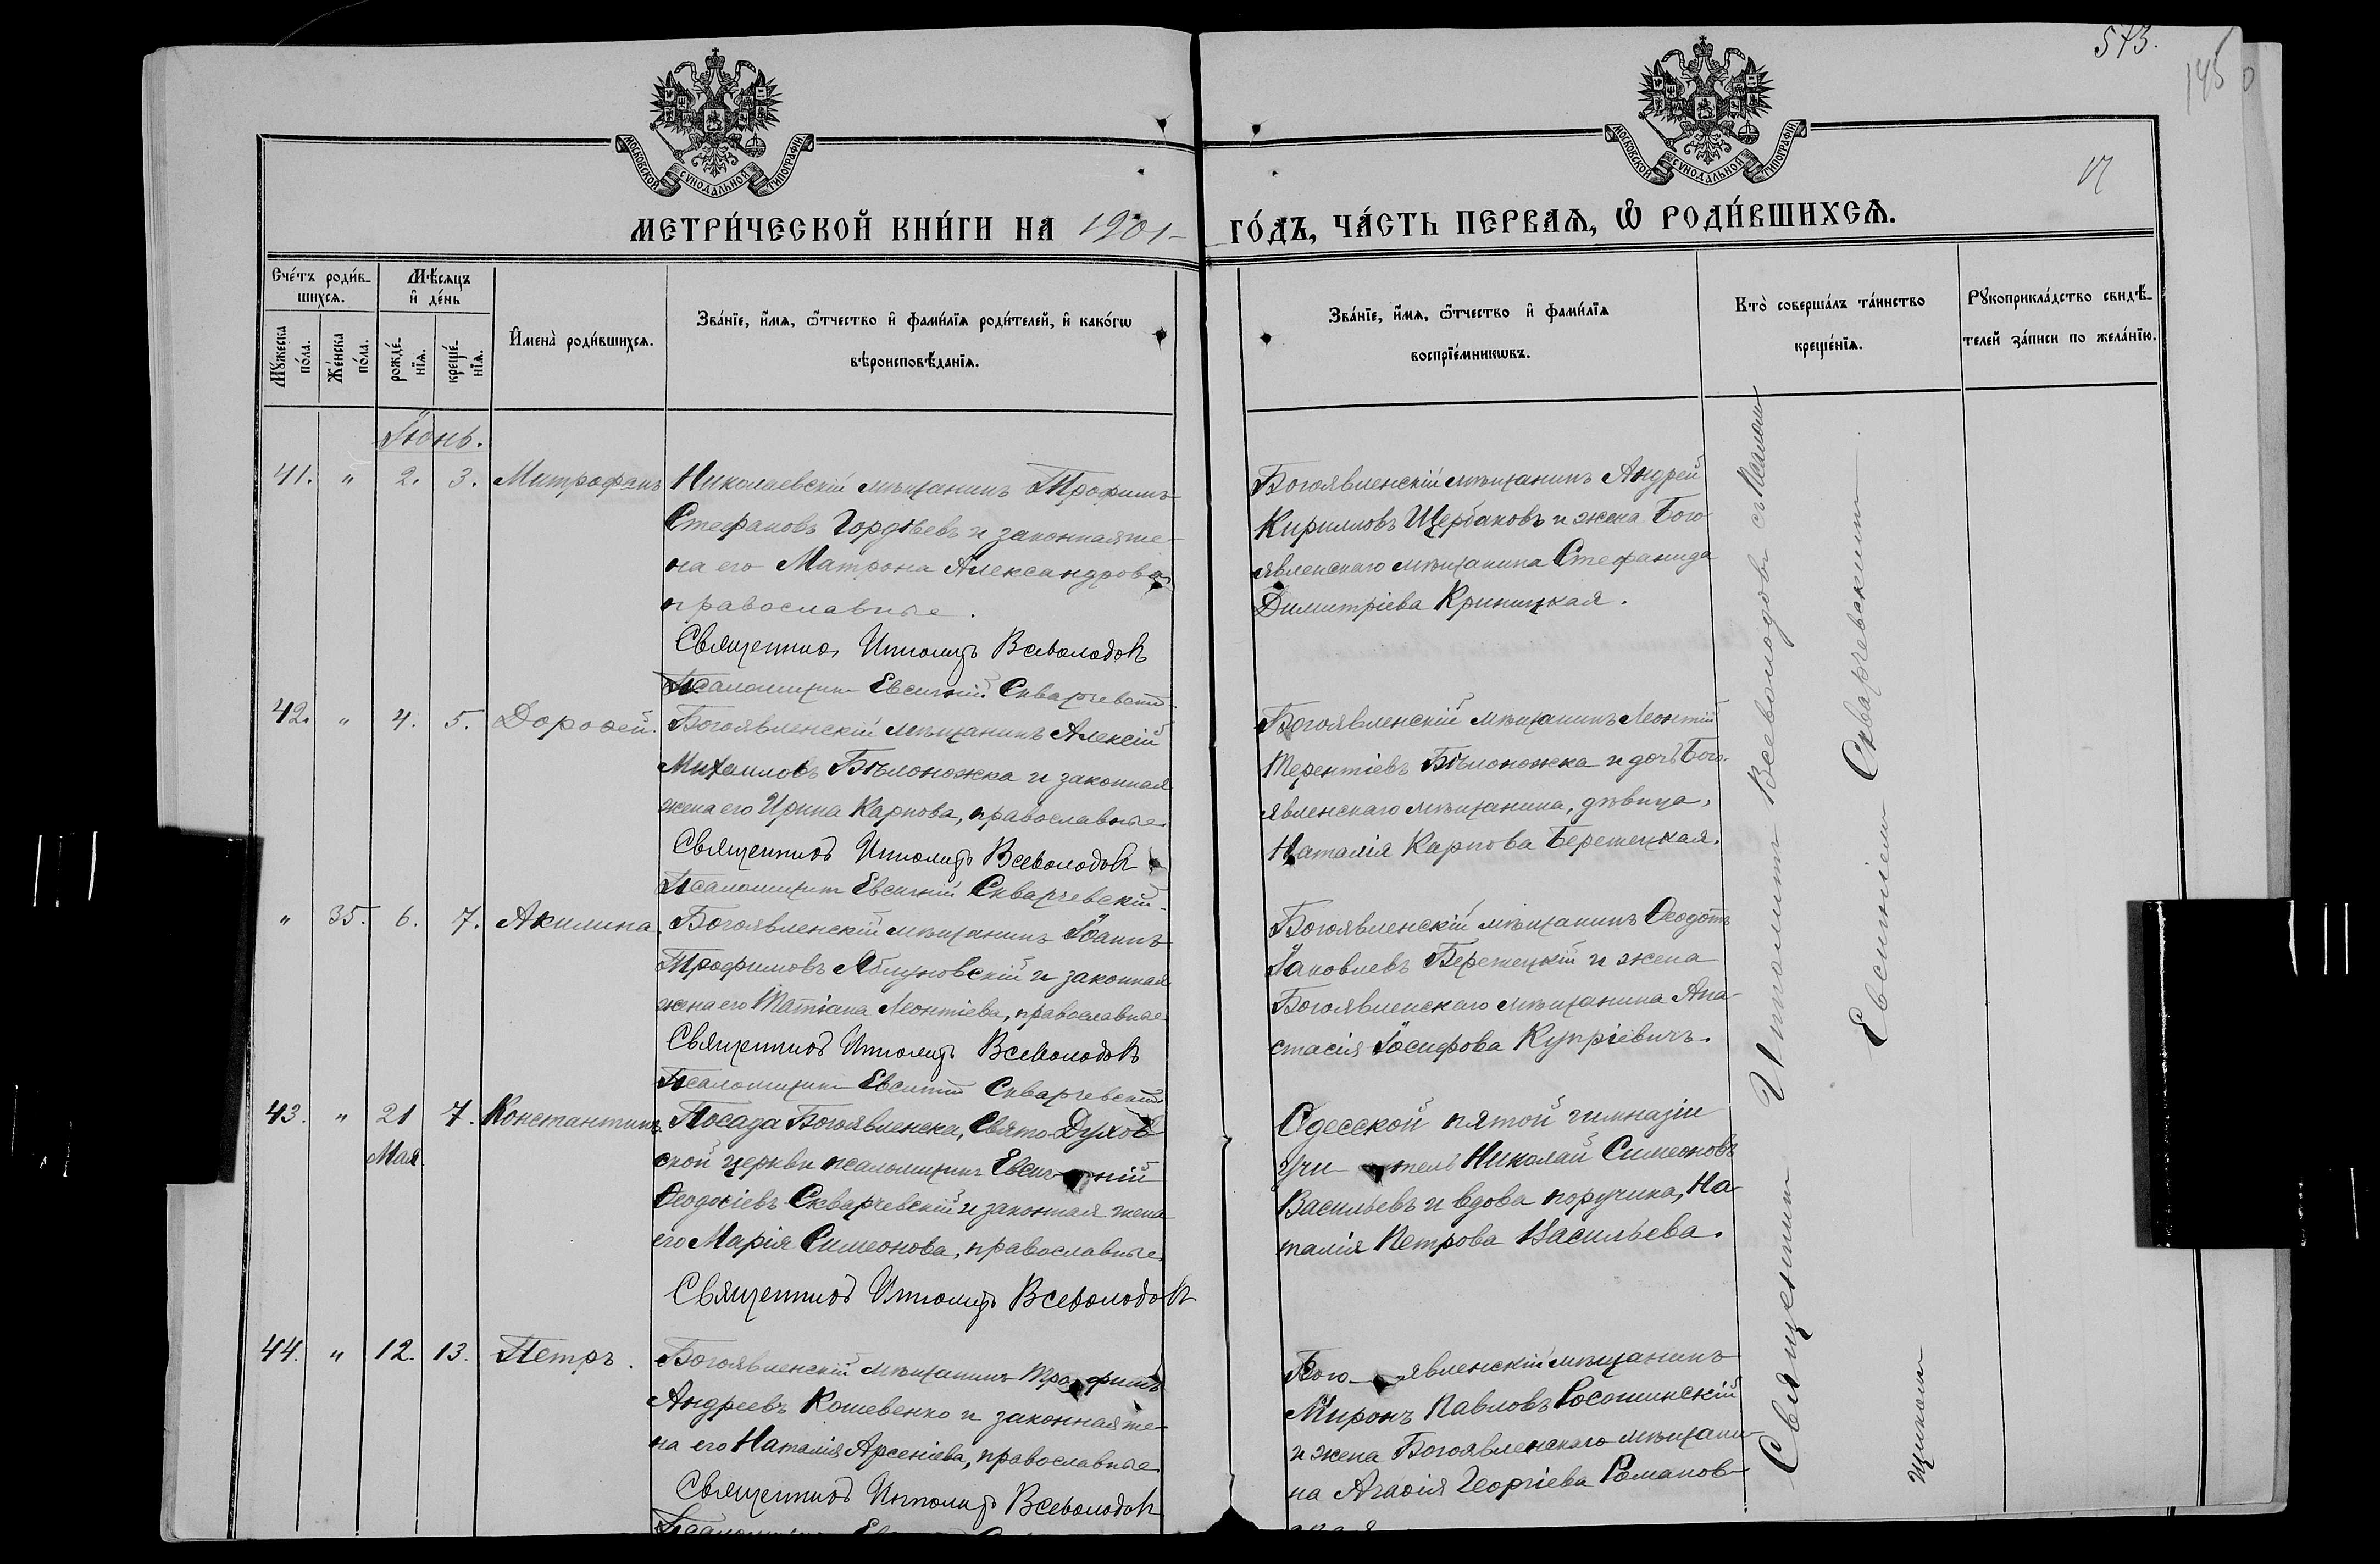 573.
145
17
МОСКОВСКОЙ СУНОДАЛЬНОЙ ТИПОГРАФІИ.
МОСКОВСКОЙ СУНОДАЛЬНОЙ ТИПОГРАФІИ.
МЕТРИ́ЧЕСКОЙ КНИ́ГИ НА 1901 ГО́ДЪ, ЧА́СТЬ ПЕРВАѦ, Ѡ҃ РОДИ́ВШИХСѦ.
Сче́тъ роди́в-
шихсѧ.
Мѣсѧцъ
и҆ де́нь
Мꙋжеска
по́ла.
Же́нска
по́ла.
рожде́-
нїѧ.
креще́-
нїѧ.
И҆мена̀ роди́вшихсѧ.
Зва́нїе, и҆́мѧ, ѻ҆́тчество и҆ фами́лїѧ роди́телей, и҆ како́гѡ
вѣроисповѣ́данїѧ.
Зва́нїе, и҆́мѧ, ѻ҆́тчество и҆ фами́лїѧ
воспрїе́мникѡвъ.
Кто̀ соверша́лъ та́инство
креще́нїѧ.
Рꙋкоприкла́дство свидѣ́-
телей за́писи по жела́нїю.
Іюнь.
41. " 2. 3. Митрофанъ
Николаевскій мѣщанинъ Трофимъ
Стефановъ Гордѣевъ и законная же-
на его Матрона Александрова,
православные.
Священникъ Ипполитъ Всеволодовъ
Псаломщикъ Евсигній Скварчевскій
Богоявленскій мѣщанинъ Андрей
Кирилловъ Щербаковъ и жена Бого-
явленскаго мѣщанина Стефанида
Димитріева Криницкая.
42. " 4. 5. Дороѳей.
Богоявленскій мѣщанинъ Алексій
Михаиловъ Бѣлоножка и законная
жена его Ирина Карпова, православные.
Священникъ Ипполитъ Всеволодовъ
Псаломщикъ Евсигній Скварчевскій.
Богоявленскій мѣщанинъ Леонтій
Терентіевъ Бѣлоножка и дочь Бого-
явленскаго мѣщанина, дѣвица,
Наталія Карпова Бережецкая.
" 35. 6. 7. Акилина.
Богоявленскій мѣщанинъ Іоаннъ
Трофимовъ Яблуновскій и законная
жена его Татіана Леонтіева, православные
Священникъ Ипполитъ Всеволодовъ
Псаломщикъ Евсигній Скварчевскій.
Богоявленскій мѣщанинъ Ѳеодотъ
Іаковлевъ Бережецкій и жена
Богоявленскаго мѣщанина Ана-
стасія Іосифова Купріевичъ.
43. " 21 7. Константинъ.
Мая.
Посада Богоявленска, Свято-Духов-
ской церкви псаломщикъ Евсигній
Ѳеодосіевъ Скварчевскій и законная жена
его Марія Симеонова, православные.
Священникъ Ипполитъ Всеволодовъ
Одесской пятой гимназіи
учитель Николай Симеоновъ
Васильевъ и вдова поручика, На-
талія Петрова Васильева.
44. " 12. 13. Петръ.
Богоявленскій мѣщанинъ Трофимъ
Андреевъ Кошевенко и законная же-
на его Наталія Арсеніева, православные.
Священникъ Ипполитъ Всеволодовъ
Псаломщикъ
Богоявленскій мѣщанинъ
Миронъ Павловъ Росошинскій
и жена Богоявленскаго мѣщани-
на Агаѳія Георгіева Романов-
ская
Священникъ Ипполитъ Всеволодовъ съ Псалом-
щикомъ Евсигніемъ Скварчевскимъ